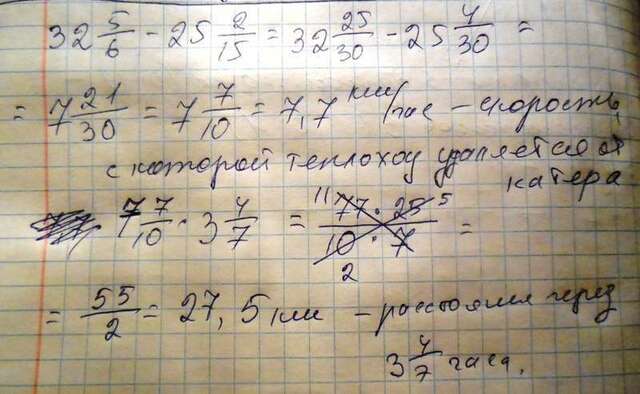 32 5/6 - 25 2/15 = 32 25/30 - 25 4/30 =
= 7 21/30 = 7 7/10 = 7,7 км/час – скорость,
с которой теплоход удаляется от
катера
7 7/10 · 3 4/7 = 77 · 25 / 10 · 7 = 11 5 2
= 55/2 = 27,5 км – расстояния через
3 4/7 часа.